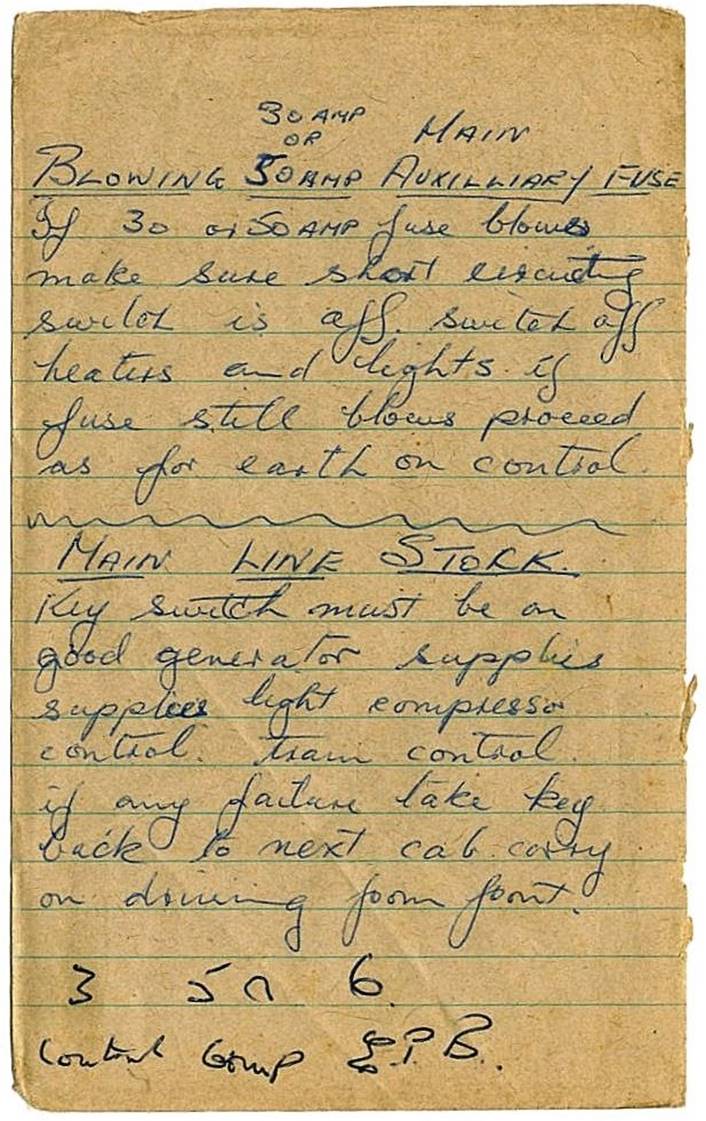 30 AMP
OR MAIN
BLOWING 50 AMP AUXILLIARY FUSE
If 30 or 50 AMP fuse blows
make sure short circuiting
switch is off. switch off
heaters and lights. if
fuse still blows proceed
as for earth on control.
MAIN LINE STOCK.
Key switch must be on
good generator supplies
supplies light compressor
control. train control.
if any failure take key
back to next cab carry
on driving from front.
3 5 6.
Control Comp E.P.B.